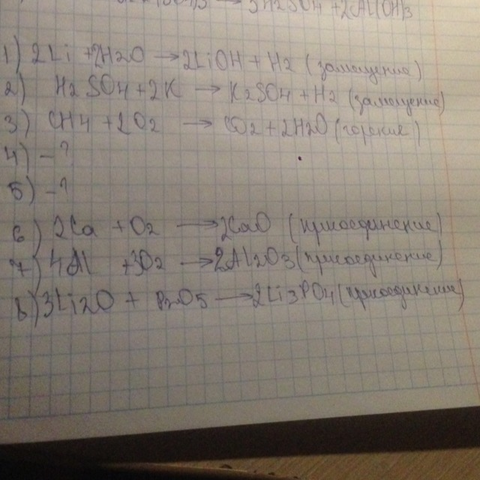 → 3H2SO4 + 2Al(OH)3
1) 2Li + 2H2O → 2LiOH + H2 (замещение)
2) H2SO4 + 2K → K2SO4 + H2 (замещение)
3) CH4 + 2O2 → CO2 + 2H2O (горение)
4) - ?
5) - ?
6) 2Ca + O2 → 2CaO (присоединение)
7) 4Al + 3O2 → 2Al2O3 (присоединение)
8) 3Li2O + P2O5 → 2Li3PO4 (присоединение)